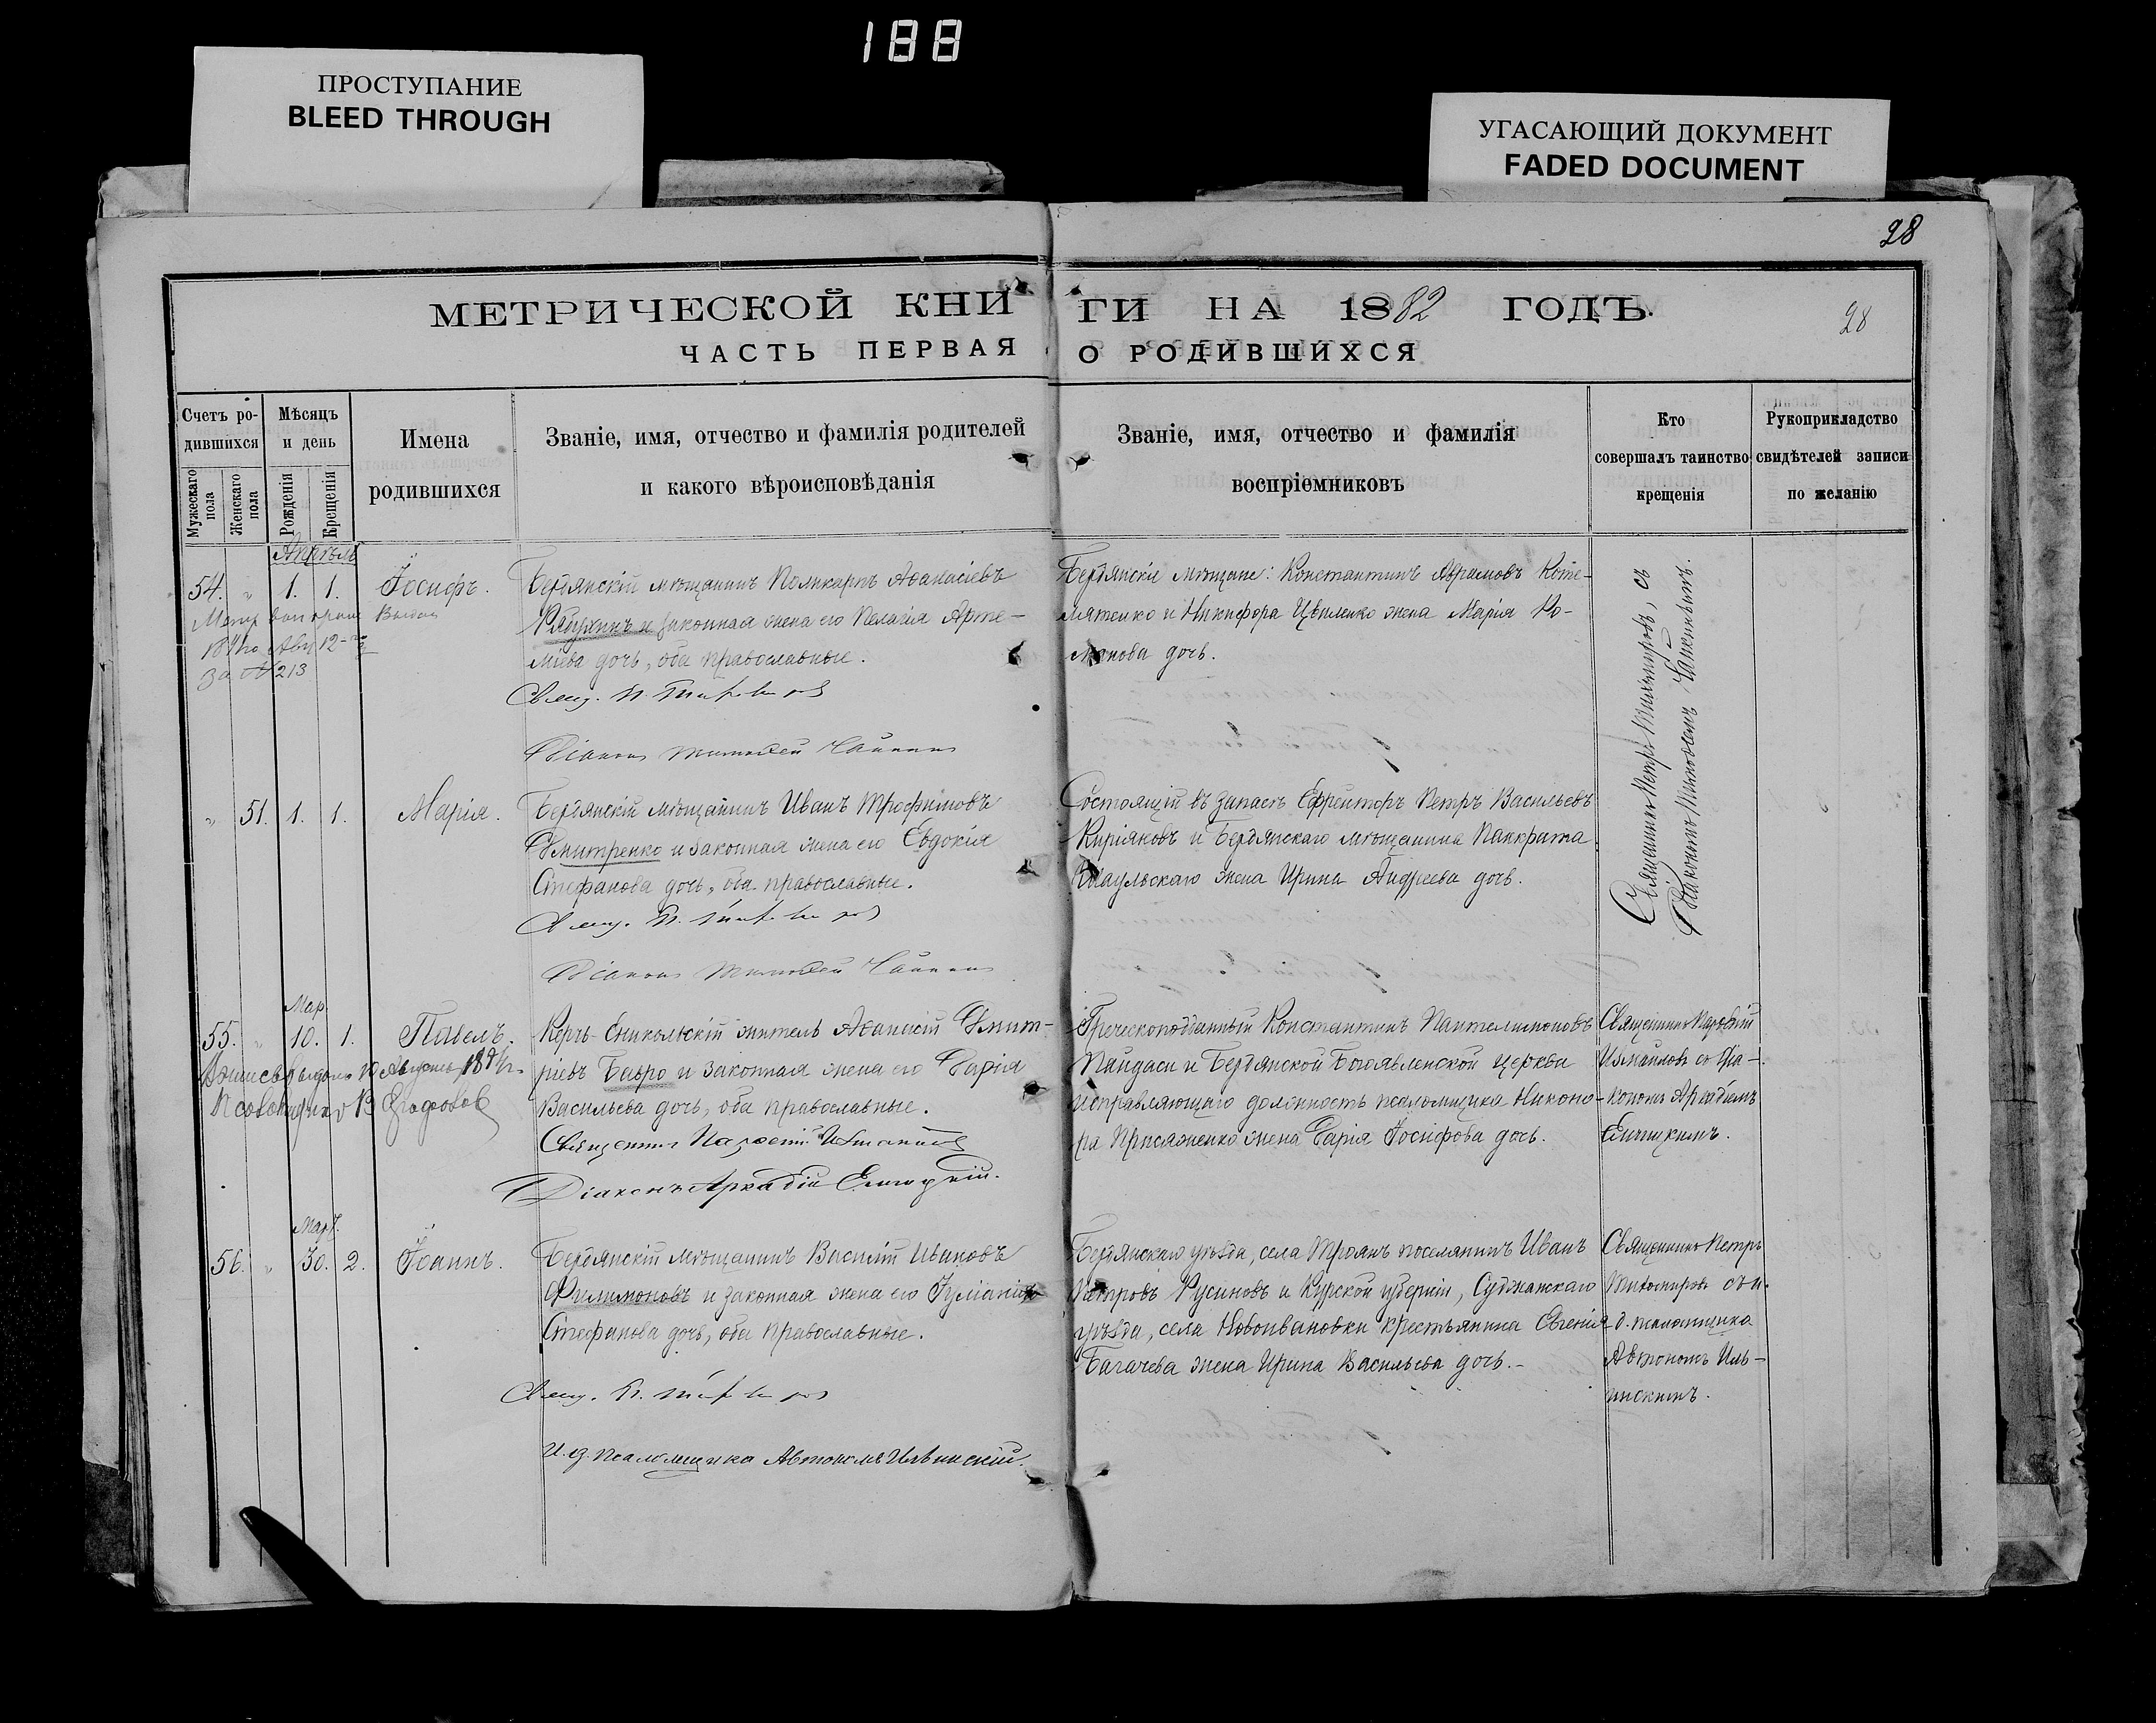 188
ПРОСТУПАНИЕ
BLEED THROUGH
УГАСАЮЩИЙ ДОКУМЕНТ
FADED DOCUMENT
28
МЕТРИЧЕСКОЙ КНИГИ НА 1882 ГОДЪ.
28
ЧАСТЬ ПЕРВАЯ О РОДИВШИХСЯ
Счетъ родившихся
Мужескаго пола
Женскаго пола
Мѣсяцъ и день
Рожденія
Крещенія
Имена
родившихся
Званіе, имя, отчество и фамилія родителей
и какого вѣроисповѣданія
Званіе, имя, отчество и фамилія
воспріемниковъ
Кто
совершалъ таинство
крещенія
Рукоприкладство
свидѣтелей записи
по желанію
Апрѣль
54. " 1. 1. Іосифъ.
за № 213
Бердянскій мѣщанинъ Поликарпъ Аѳанасіевъ
и законная жена его Пелагія Арте-
міева дочь, оба православные.
Свящ. П. Тихомировъ
Діаконъ Тимоѳей
Бердянскіе мѣщане: Константинъ Аврамовъ Коте-
лятенко и Никифора Цвиленко жена Марія Ро-
манова дочь.
Священникъ Петръ Тихомировъ, съ
Діакономъ Тимоѳеемъ
" 51. 1. 1. Марія.
Бердянскій мѣщанинъ Иванъ Трофимовъ
Дмитренко и законная жена его Евдокія
Стефанова дочь, оба православные.
Свящ. П. Тихомировъ
Діаконъ Тимоѳей
Состоящій въ запасѣ Ефрейторъ Петръ Васильевъ
Киріяковъ и Бердянскаго мѣщанина Панкрата
Шаульскаго жена Ирина Андреева дочь.
Мар.
55. " 10. 1. Павелъ.
Керчь-Еникольскій житель Аѳанасій Димит-
ріевъ Бавро и законная жена его Дарія
Васильева дочь, оба православные.
Священникъ
Діаконъ Аркадій
Греческоподданный Константинъ Пантелимоновъ
Пандаси и Бердянской Богоявленской церкви
исправляющаго должность псаломщика Никоно-
ра Присяженко жена Дарія Іосифова дочь.
Священникъ
Измаиловъ съ Діа-
кономъ Аркадіемъ
Март.
56. " 30. 2. Іоаннъ.
Бердянскій мѣщанинъ Василій Ивановъ
Филимоновъ и законная жена его Іуліанія
Стефанова дочь, оба православные.
Свящ. П. Тихомировъ
И. д. псаломщика Автономъ Ильинскій.
Бердянскаго уѣзда, села Троянъ поселянинъ Иванъ
Петровъ Русиновъ и Курской губерніи, Суджанскаго
уѣзда, села Новоивановки крестьянина Евгенія
Багачева жена Ирина Васильева дочь.-
Священникъ Петръ
Тихомировъ съ и.
д. псаломщика
Автономъ Иль-
инскимъ.